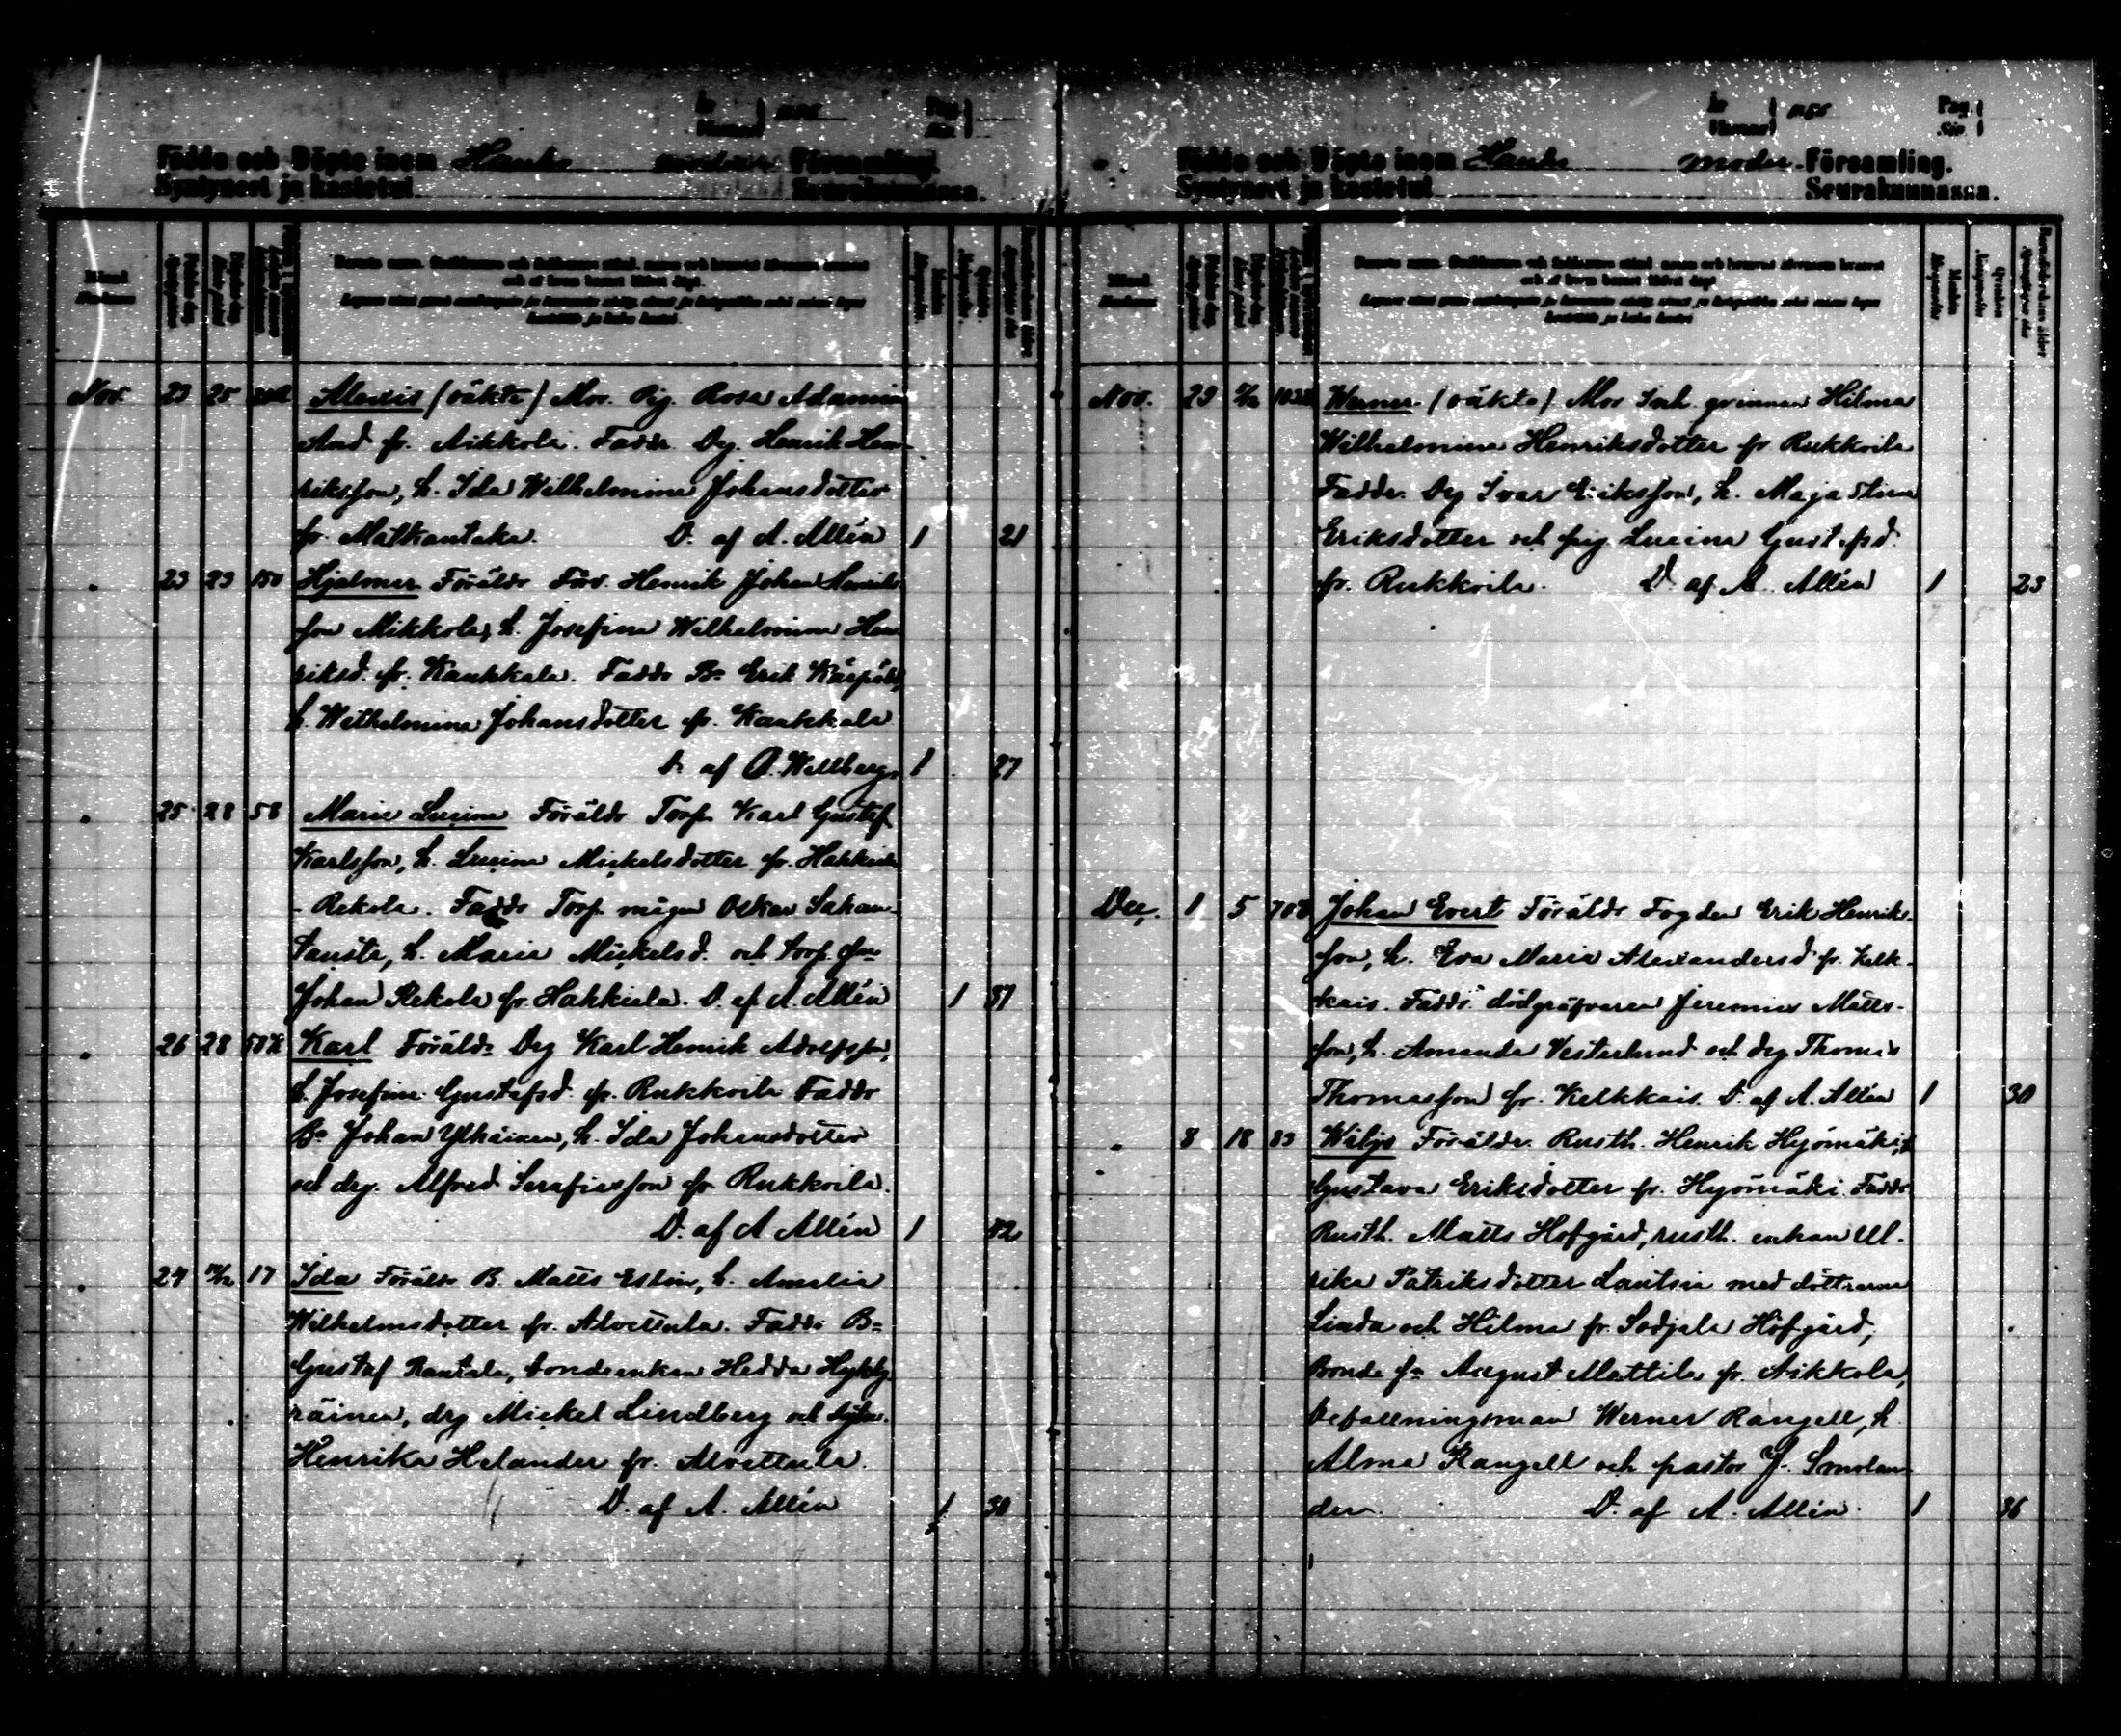 Födde och Döpte inom Hauho moder Församling.
Syntyneet ja kastetut Seurakunnassa.
Nov. 23 25 Alexis (oäkta) Mor. Pig. Rosa Adamina
And fr. Aikkola. Faddr. Drg. Henrik Hen-
riksson, h. Ida Wilhelmina Johansdotter
fr. Matkantaka. D. af A. Allén 1 21
23 29 150 Hjalmar Föräldr Förv. Henrik Johan Henriks-
son Mikkola, h. Josefina Wilhelmina Hen
riksd. fr. Kaukkala. Faddr Bn Erik
h. Wilhelmina Johansdotter fr. Kaukkala
D. af O. Wellberg 1 27
25 28 58 Maria Lucina Föräldr Torp. Karl Gustaf
Karlsson, h. Lucina Mickelsdotter fr. Hakkiala
- Rekola. Faddr Torp. mågen Oskar Sakan-
tausta, h. Maria Mickelsd. och torp. sn
Johan Rekola fr. Hakkiala. D. af A. Allén 1 37
26 28 Karl Föräldr Drg Karl Henrik Adolfsson,
h. Josefina Gustafsd. fr. Rukkoila Faddr
Bn Johan Ylhäinen, h. Ida Johansdotter
och drg. Alfred Serafiasson fr. Rukkoila.
D. af A Allén 1 32
17 Ida Föräldr B. Matts Eslin, h. Amalia
Wilhelmsdotter fr. Alvettula. Faddr Bn
Gustaf Rantala, bondeenkan Hedda
räinen, drg Mickel Lindberg och
Henrika Helander fr. Alvettula.
D. af A. Allén 1 30
Pag.
Siv.
Födde och Döpte inom Hauho moder Församling.
Syntyneet ja kastetut Seurakunnassa.
Nov. 29 Werner (oäkta) Mor Inh. qvinnan Hilma
Wilhelmina Henriksdotter fr Rukkoila
Faddr. Drg Ivar Eriksson, h. Maja Stina
Eriksdotter och pig Lucina Gustafsd.
fr. Rukkoila. D. af A. Allén 1 23
Dec. 1 5 Johan Evert Föräldr Fogden Erik Henriks-
son, h. Eva Maria Alexandersd fr. Kelk-
kais. Faddr. dödgräfvaren Jeremias Matts-
son, h. Amanda Vesterlund och drg Thomas
Thomasson fr. Kelkkais. D. af A. Allén 1 30
8 18 83 Wiljo Föräldr. Rusth. Henrik Hyömäki, h.
Gustava Eriksdotter fr. Hyömäki. Faddr
Rusth. Matts Hofgård, rusth. enkan Ul-
rika Patriksdotter Lautsia med döttrarna
Linda och Hilma fr. Sodjala Hofgård,
Bonde sn August Mattila fr. Aikkola,
befallningsman Werner Rangell, h.
Alma Rangell och pastor J. Smolan-
der. D. af A. Allén. 1 36